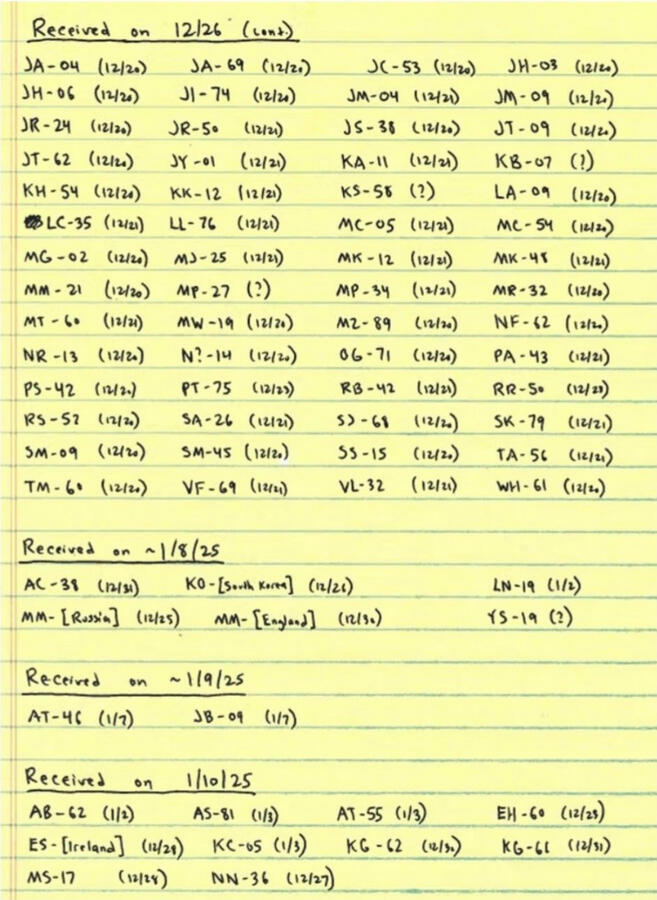 Received on 12/26 (cont.)
JA-04 (12/20) JA-69 (12/20) JC-53 (12/20) JH-03 (12/20)
JH-06 (12/20) JI-74 (12/20) JM-04 (12/21) JM-09 (12/20)
JR-24 (12/20) JR-50 (12/21) JS-38 (12/20) JT-09 (12/20)
JT-62 (12/20) JY-01 (12/21) KA-11 (12/21) KB-07 (?)
KH-54 (12/20) KK-12 (12/21) KS-58 (?) LA-09 (12/20)
LC-35 (12/21) LL-76 (12/21) MC-05 (12/21) MC-54 (12/20)
MG-02 (12/20) MJ-25 (12/21) MK-12 (12/21) MK-48 (12/21)
MM-21 (12/20) MP-27 (?) MP-34 (12/21) MR-32 (12/20)
MT-60 (12/21) MW-19 (12/20) MZ-89 (12/20) NF-62 (12/20)
NR-13 (12/20) N?-14 (12/20) OG-71 (12/20) PA-43 (12/21)
PS-42 (12/20) PT-75 (12/23) RB-42 (12/21) RR-50 (12/23)
RS-52 (12/20) SA-26 (12/21) SJ-68 (12/20) SK-79 (12/21)
SM-09 (12/20) SM-45 (12/20) SS-15 (12/20) TA-56 (12/21)
TM-60 (12/20) VF-69 (12/21) VL-32 (12/21) WH-61 (12/20)
Received on ~1/8/25
AC-38 (12/31) KO-[South Korea] (12/26) LN-19 (1/2)
MM-[Russia] (12/25) MM-[England] (12/30) YS-19 (?)
Received on ~1/9/25
AT-46 (1/7) JB-09 (1/7)
Received on 1/10/25
AB-62 (1/2) AS-81 (1/3) AT-55 (1/3) EH-60 (12/23)
ES-[Ireland] (12/28) KC-05 (1/3) KG-62 (12/30) KG-61 (12/31)
MS-17 (12/28) NN-36 (12/27)